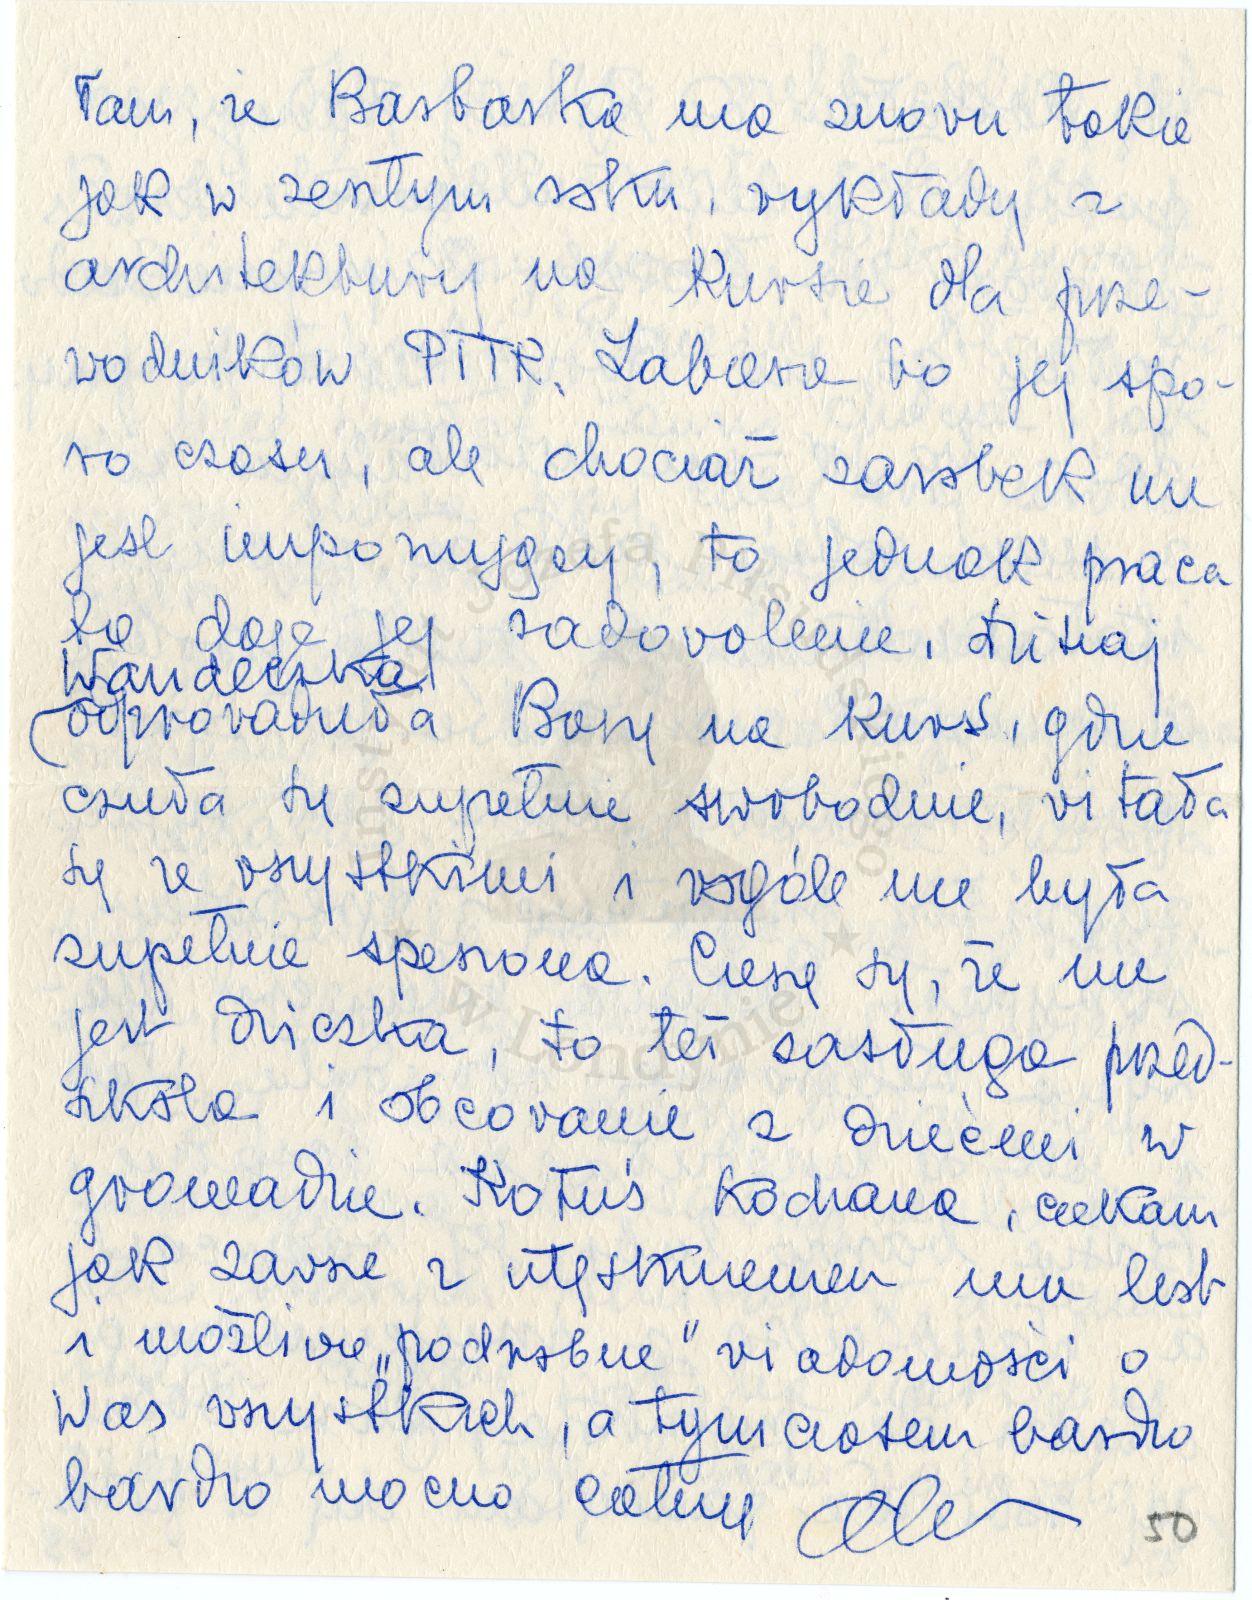 łam, że Barbarka ma znowu takie
jak w zeszłym roku, wykłady z
architektury na Kursie dla prze-
wodników PTTK. Zabiera to jej spo-
ro czasu, ale chociaż zarobek nie
jest imponujący, to jednak praca
ta daje jej zadowolenie. Dzisiaj
Wandeczka
odprowadziła Basię na Kurs, gdzie
czuła się zupełnie swobodnie, witała
się ze wszystkimi i wogóle nie była
zupełnie speszona. Cieszę się, że nie
jest dziczka, to też zasługa przed-
szkola i obcowanie z dziećmi w
gromadzie. Kotuś Kochana, czekam
jak zawsze z utęsknieniem na list
i możliwie „podrobne" wiadomości o
Was wszystkich, a tymczasem bardzo
bardzo mocno całuję Ala
50
Instytut Józefa Piłsudskiego
w Londynie